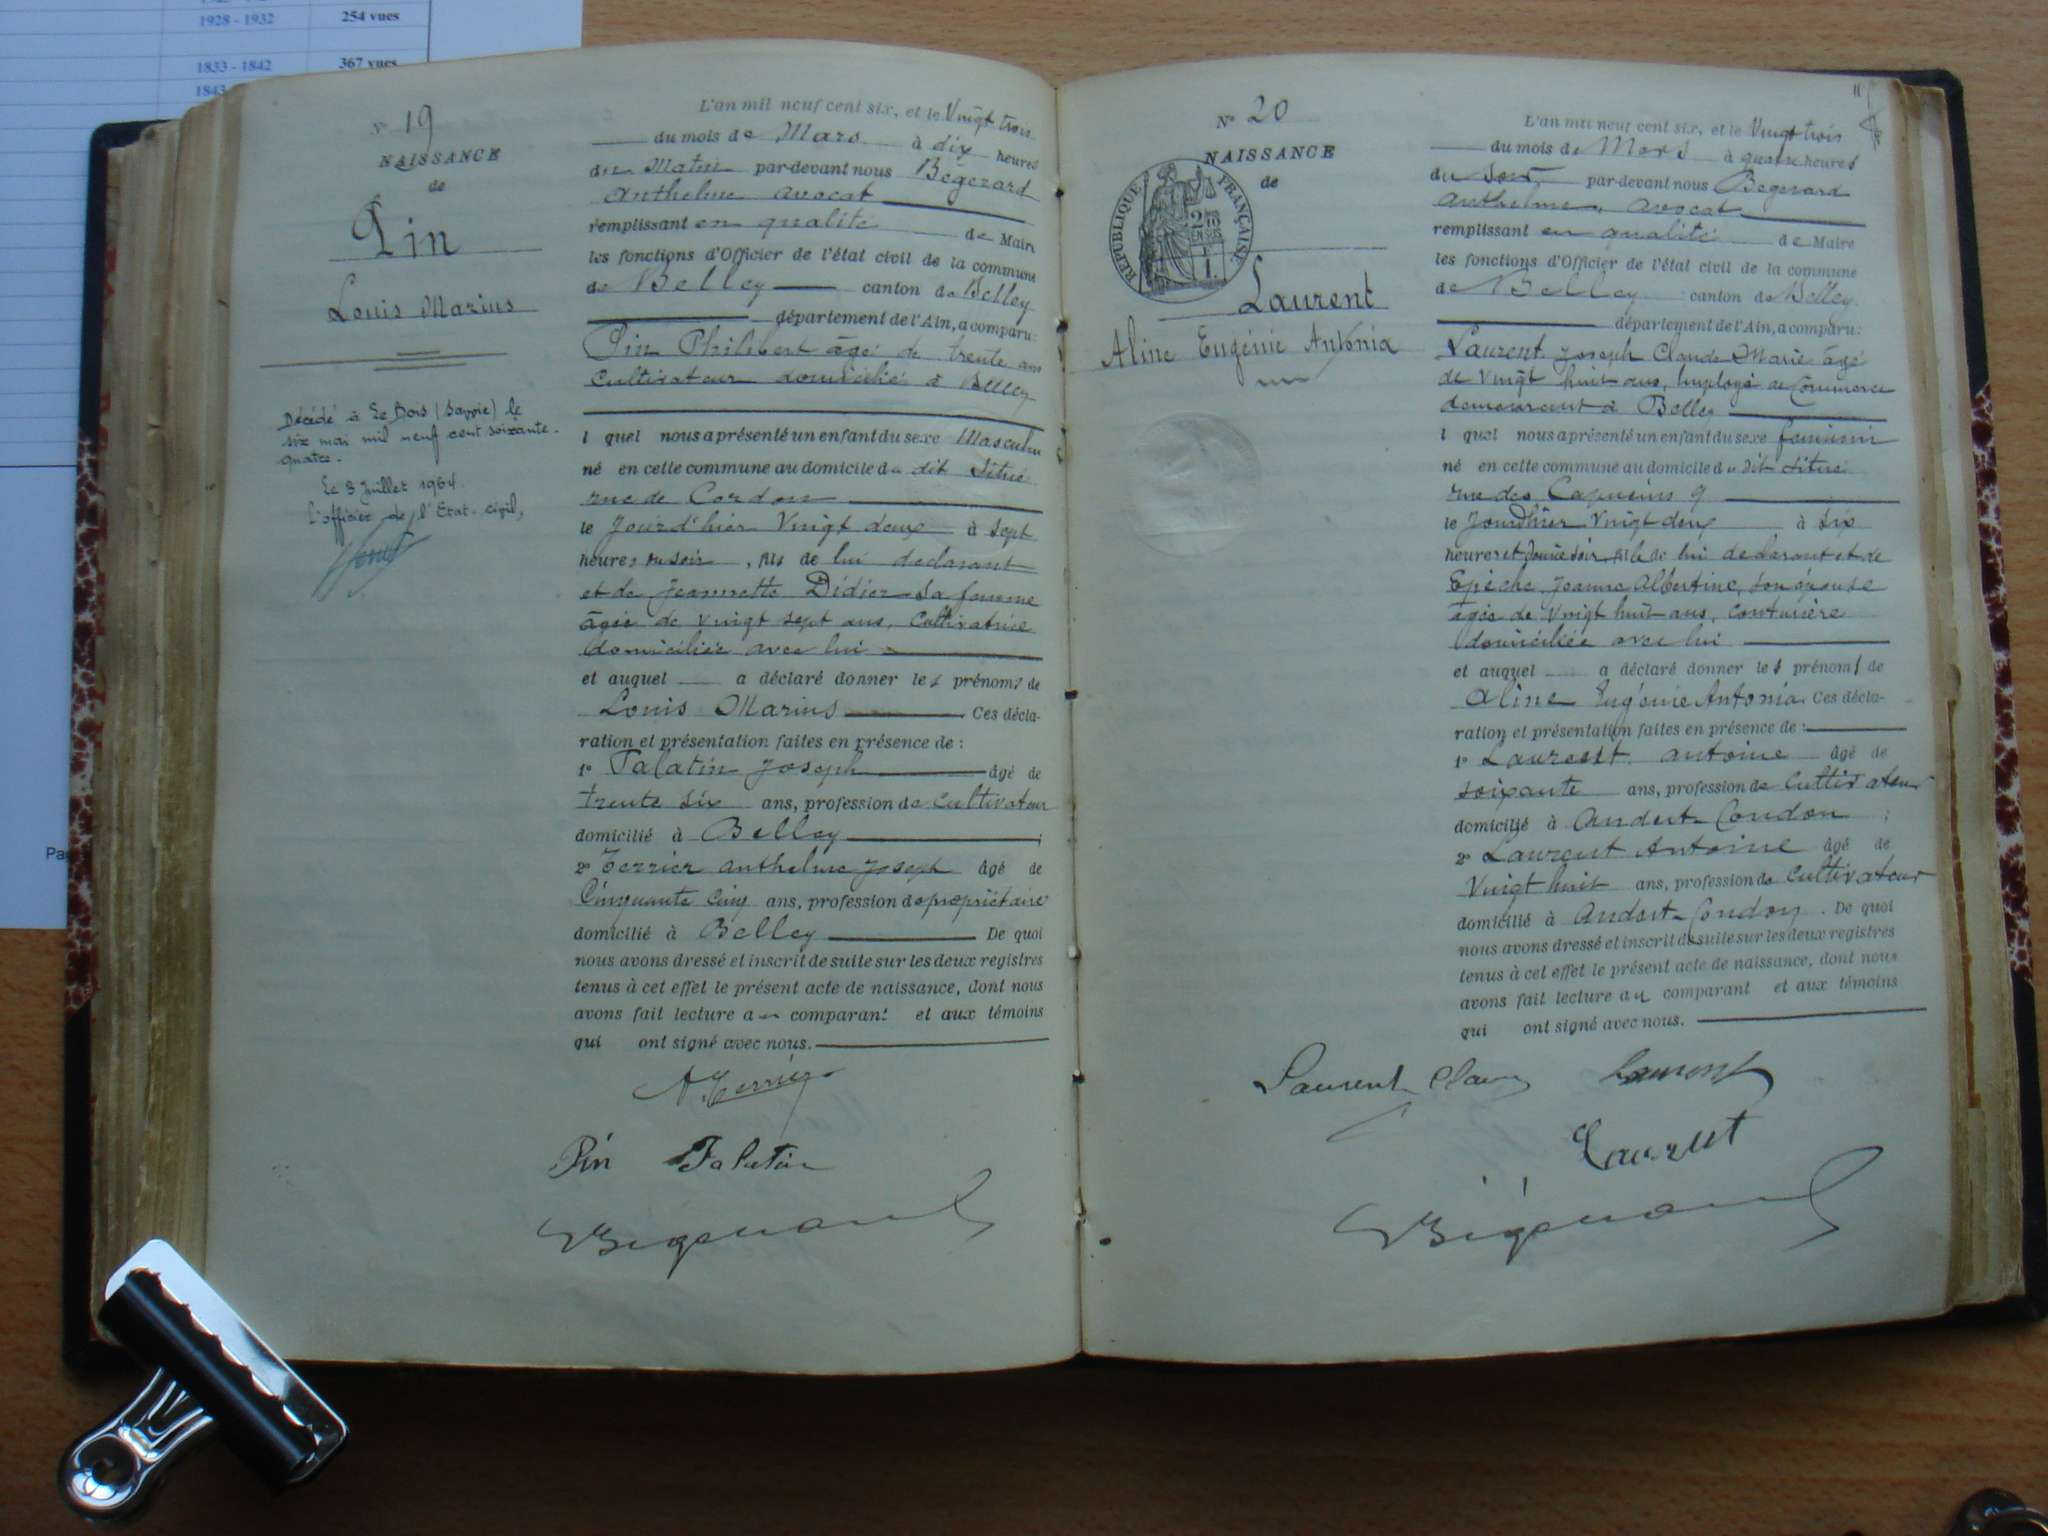 1928 - 1932 254 vues
1833 - 1842 367 vues
1843
Pa
N° 19
NAISSANCE
de
Pin
Louis Marius
Décédé à Le Bois (Savoie) le
six mai mil neuf cent soixante-
quatre.
Le 8 Juillet 1964.
l'officier de l'Etat-civil,
L'an mil neuf cent six, et le Vingt trois
du mois de Mars à dix heures
du Matin par-devant nous Bégerard
Anthelme avocat
remplissant en qualité de Maire
les fonctions d'Officier de l'état civil de la commune
de Belley canton de Belley
département de l'Ain, a comparu:
Pin Philibert âgé de trente ans
Cultivateur domicilié à Belley
l quel nous a présenté un enfant du sexe Masculin
né en cette commune au domicile du dit situé
rue de Cordon
le Jourd'hier Vingt deux à sept
heures du soir, fils de lui declarant
et de Jeannette Didier sa femme
âgée de vingt sept ans, Cultivatrice
domiciliée avec lui
et auquel a déclaré donner les prénoms de
Louis Marius Ces décla-
ration et présentation faites en présence de :
1° Talatin Joseph âgé de
trente six ans, profession de cultivateur
domicilié à Belley ;
2° Terrier Anthelme Joseph âgé de
Cinquante cinq ans, profession de propriétaire
domicilié à Belley De quoi
nous avons dressé et inscrit de suite sur les deux registres
tenus à cet effet le présent acte de naissance, dont nous
avons fait lecture au comparant et aux témoins
qui ont signé avec nous.
A. Terrier
Pin Talatin
Bégerard
N° 20
NAISSANCE
de
RÉPUBLIQUE FRANÇAISE
2/10 EN SUS
1 F.
Laurent
Aline Eugénie Antonia
11
L'an mil neuf cent six, et le Vingt trois
du mois de Mars à quatre heures
du Soir par-devant nous Bégerard
Anthelme, avocat
remplissant en qualité de Maire
les fonctions d'Officier de l'état civil de la commune
de Belley canton de Belley
département de l'Ain, a comparu:
Laurent Joseph Claude Marie âgé
de Vingt huit ans, Employé de Commerce
demeurant à Belley
l quel nous a présenté un enfant du sexe feminin
né en cette commune au domicile du dit situé
rue des Capucins 9
le Jourdhier Vingt deux à six
heures et demie soir fille de lui declarant et de
Epèche Jeanne Albertine, son épouse
âgée de Vingt huit ans, couturière
domiciliée avec lui
et auquel a déclaré donner les prénoms de
Aline Eugénie Antonia Ces décla-
ration et présentation faites en présence de :
1° Laurent Antoine âgé de
soixante ans, profession de cultivateur
domicilié à Andert-Condon ;
2° Laurent Antoine âgé de
Vingt huit ans, profession de cultivateur
domicilié à Andert-Condon. De quoi
nous avons dressé et inscrit de suite sur les deux registres
tenus à cet effet le présent acte de naissance, dont nous
avons fait lecture au comparant et aux témoins
qui ont signé avec nous.
Laurent Claude Laurent
Laurent
Bégerard